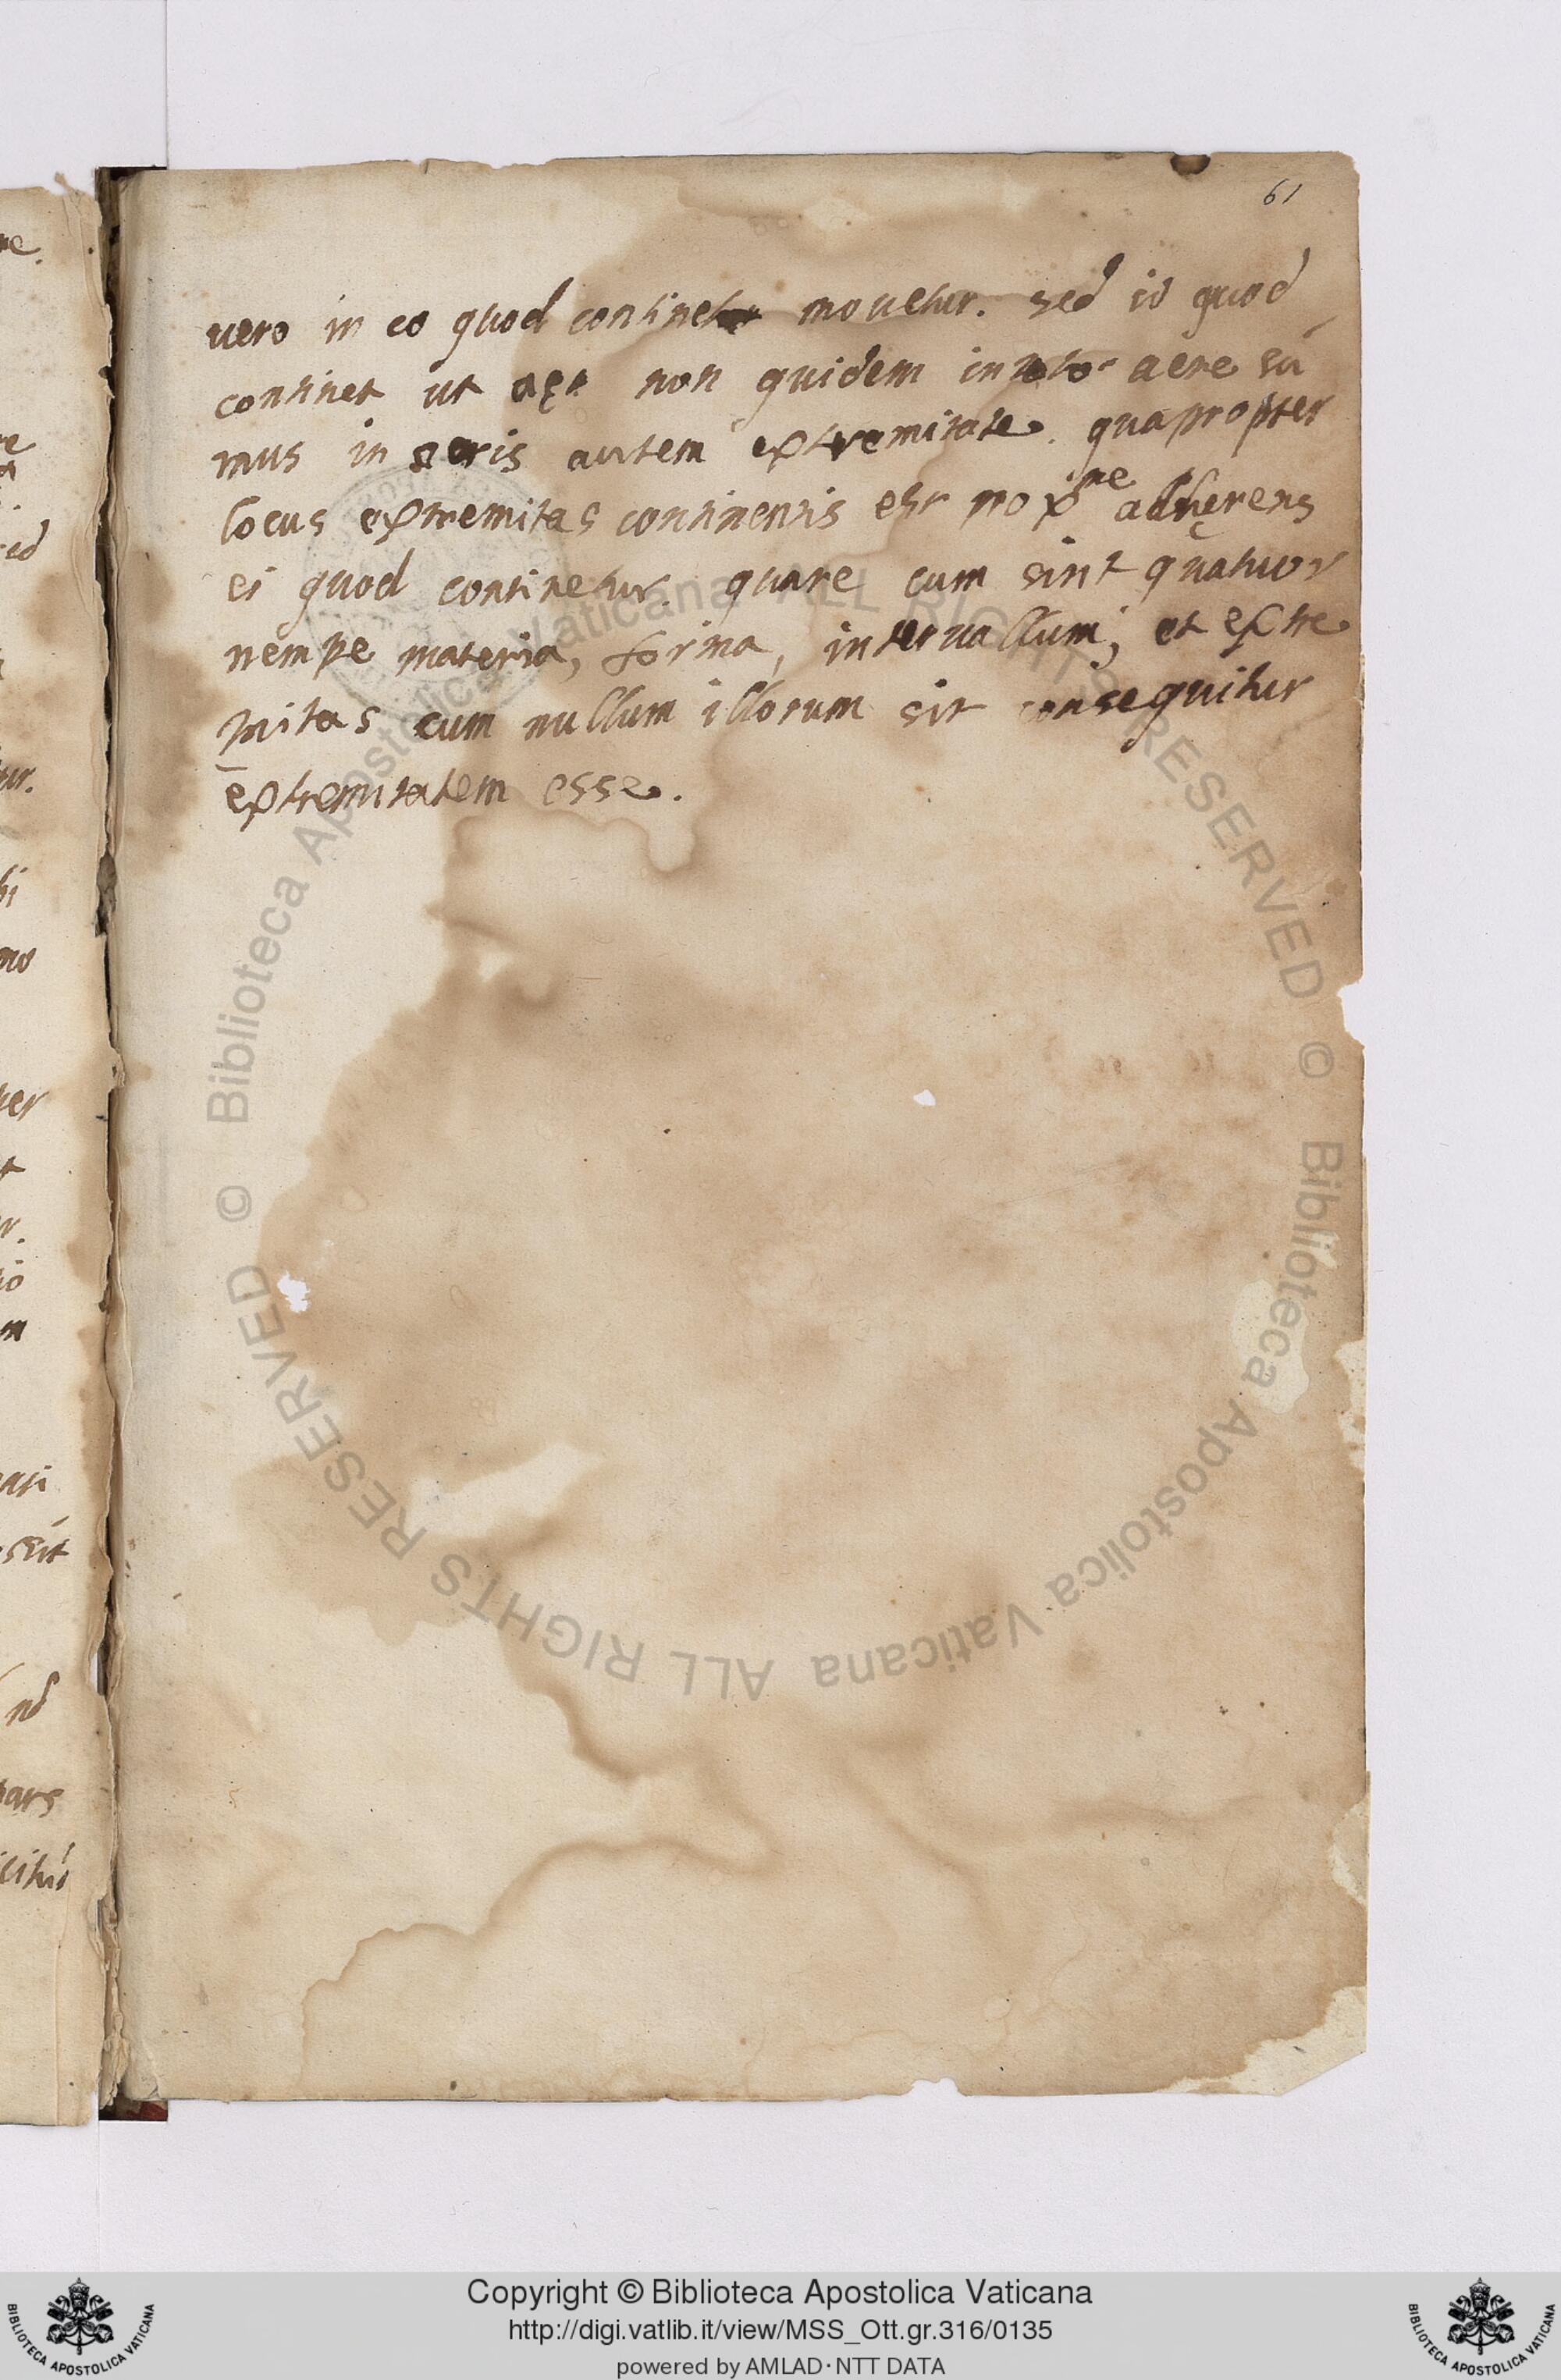 61
vero in eo quod continet movetur. sed id quod
continet ut aer non quidem in toto aere sú
mus in aeris autem extremitate. quapropter
locus extremitas continentis est proxᵐᵉ adhęrens
ei quod continetur. quare cum sint quatuor
nempe materia, forma, intervallum, et extre
mitas cum nullum illorum sit consequitur
extremitatem esse.
Copyright © Biblioteca Apostolica Vaticana
http://digi.vatlib.it/view/MSS_Ott.gr.316/0135
powered by AMLAD·NTT DATA
BIBLIOTECA APOSTOLICA VATICANA
BIBLIOTECA APOSTOLICA VATICANA
© Biblioteca Apostolica Vaticana ALL RIGHTS RESERVED © Biblioteca Apostolica Vaticana ALL RIGHTS RESERVED